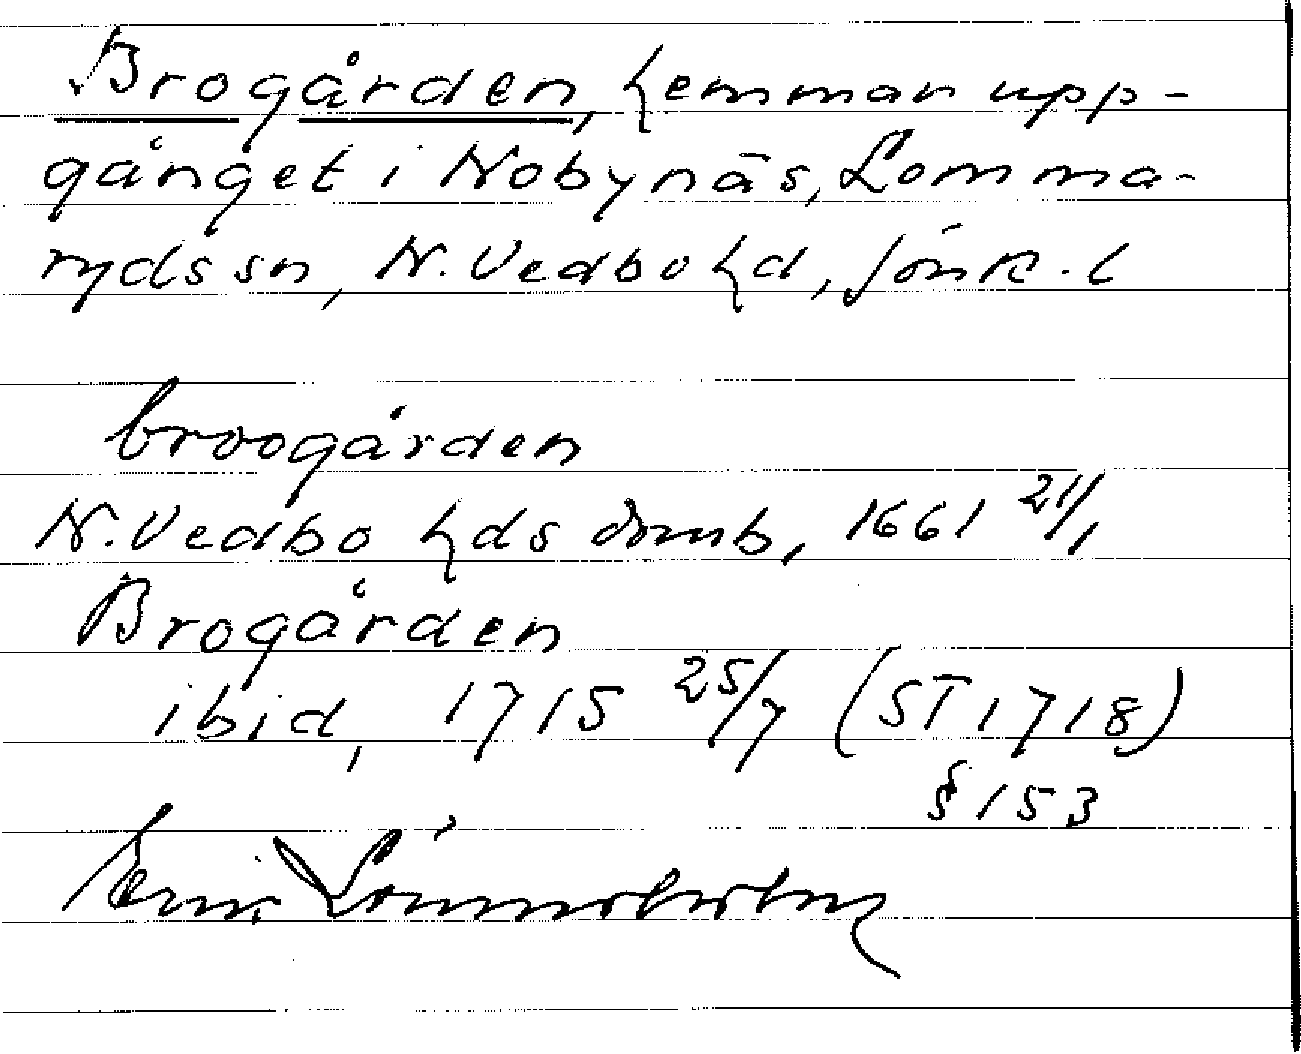 Brogården, hemman upp-
gånget i Nobynäs, Lomma-
ryds sn, N. Vedbo hd, Jönk. l
broogården
N. Vedbo hds domb, 1661 21/1
Brogården
ibid, 1715 25/7 (ST 1718)
§ 153
Lönnerholm